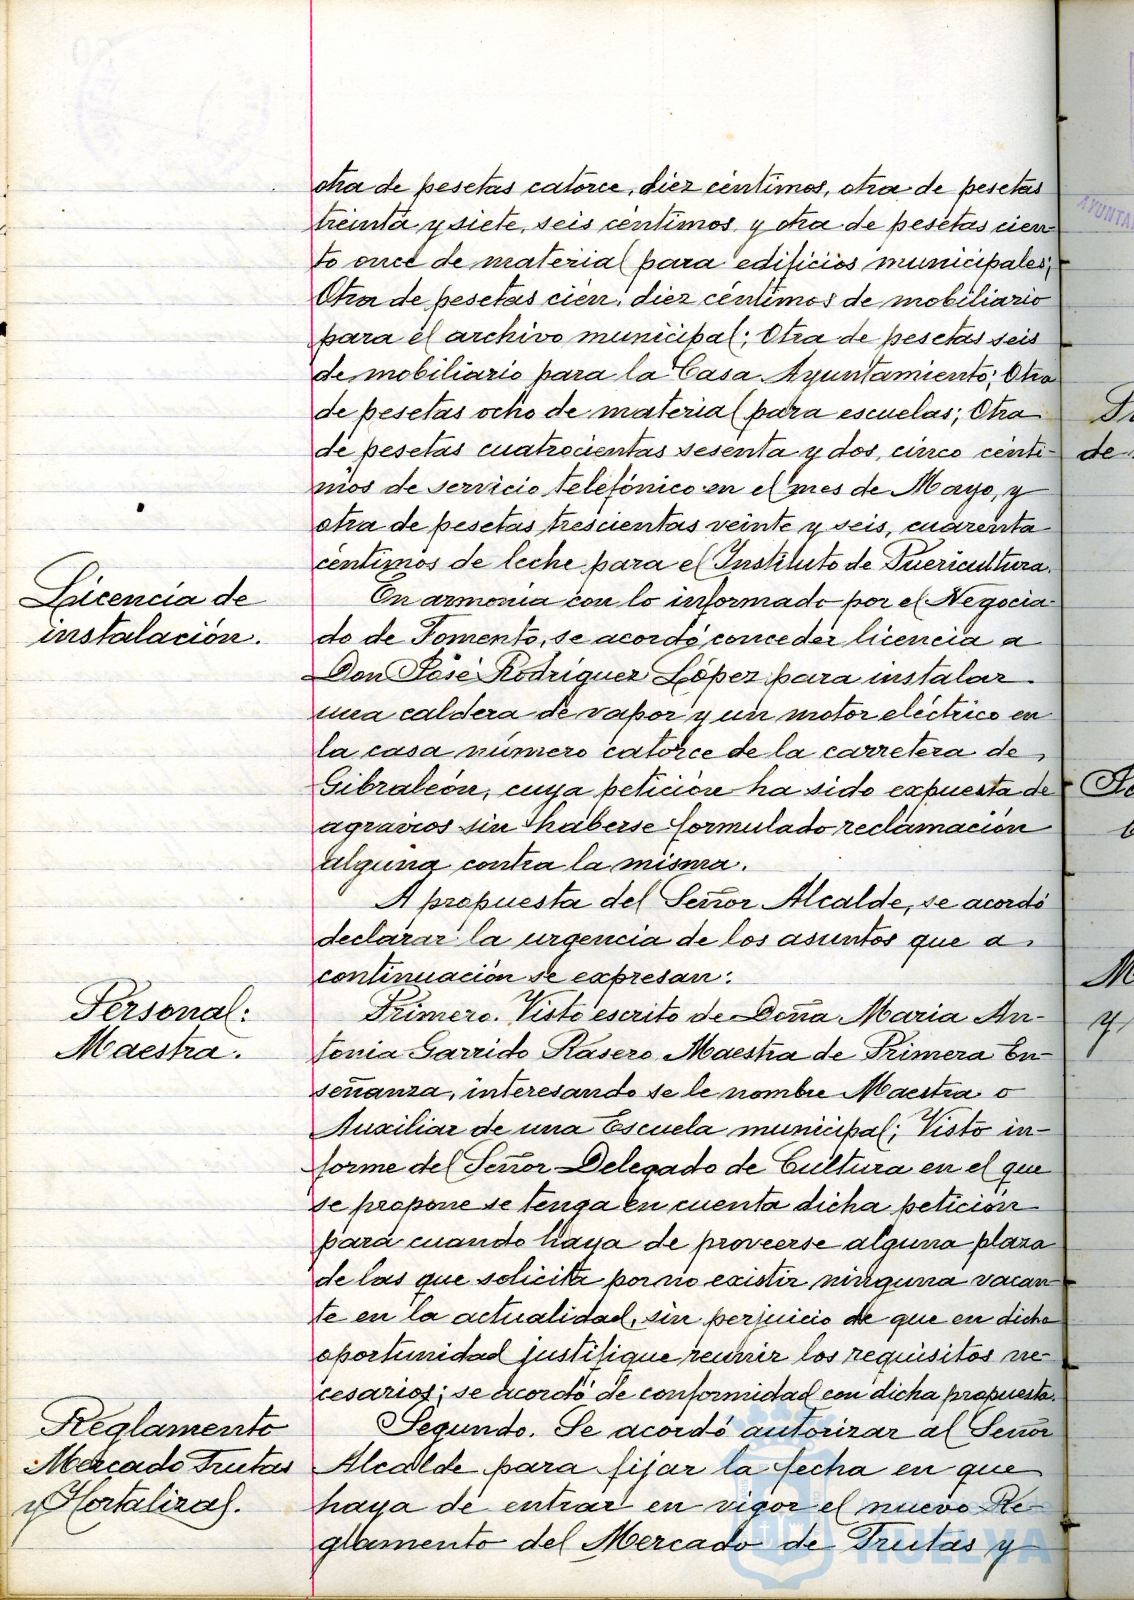 otra de pesetas catorce, diez céntimos, otra de pesetas
treinta y siete, seis céntimos y otra de pesetas cien-
to once de material para edificios municipales;
Otra de pesetas cien, diez céntimos de mobiliario
para el archivo municipal; Otra de pesetas seis
de mobiliario para la Casa Ayuntamiento; Otra
de pesetas ocho de material para escuelas; Otra
de pesetas cuatrocientas sesenta y dos, cinco cénti-
mos de servicio telefónico en el mes de Mayo, y
otra de pesetas trescientas veinte y seis, cuarenta
céntimos de leche para el Instituto de Puericultura.
Licencia de
instalación.
En armonia con lo informado por el Negocia-
do de Fomento, se acordó conceder licencia a
Don José Rodríguez López para instalar
una caldera de vapor y un motor eléctrico en
la casa número catorce de la carretera de
Gibraleón, cuya petición ha sido expuesta de
agravios sin haberse formulado reclamación
alguna contra la misma.
A propuesta del Señor Alcalde, se acordó
declarar la urgencia de los asuntos que a
continuación se expresan:
Personal:
Maestra.
Primero. Visto escrito de Doña Maria An-
tonia Garrido Rasero Maestra de Primera En-
señanza, interesando se le nombre Maestra o
Auxiliar de una Escuela municipal; Visto in-
forme del Señor Delegado de Cultura en el que
se propone se tenga en cuenta dicha petición
para cuando haya de proveerse alguna plaza
de las que solicita por no existir ninguna vacan-
te en la actualidad, sin perjuicio de que en dicha
oportunidad justifique reunir los requisitos ne-
cesarios; se acordó de conformidad con dicha propuesta.
Reglamento
Mercado Frutas
y Hortalizas.
Segundo. Se acordó autorizar al Señor
Alcalde para fijar la fecha en que
haya de entrar en vigor el nuevo Re-
glamento del Mercado de Frutas y
HUELVA